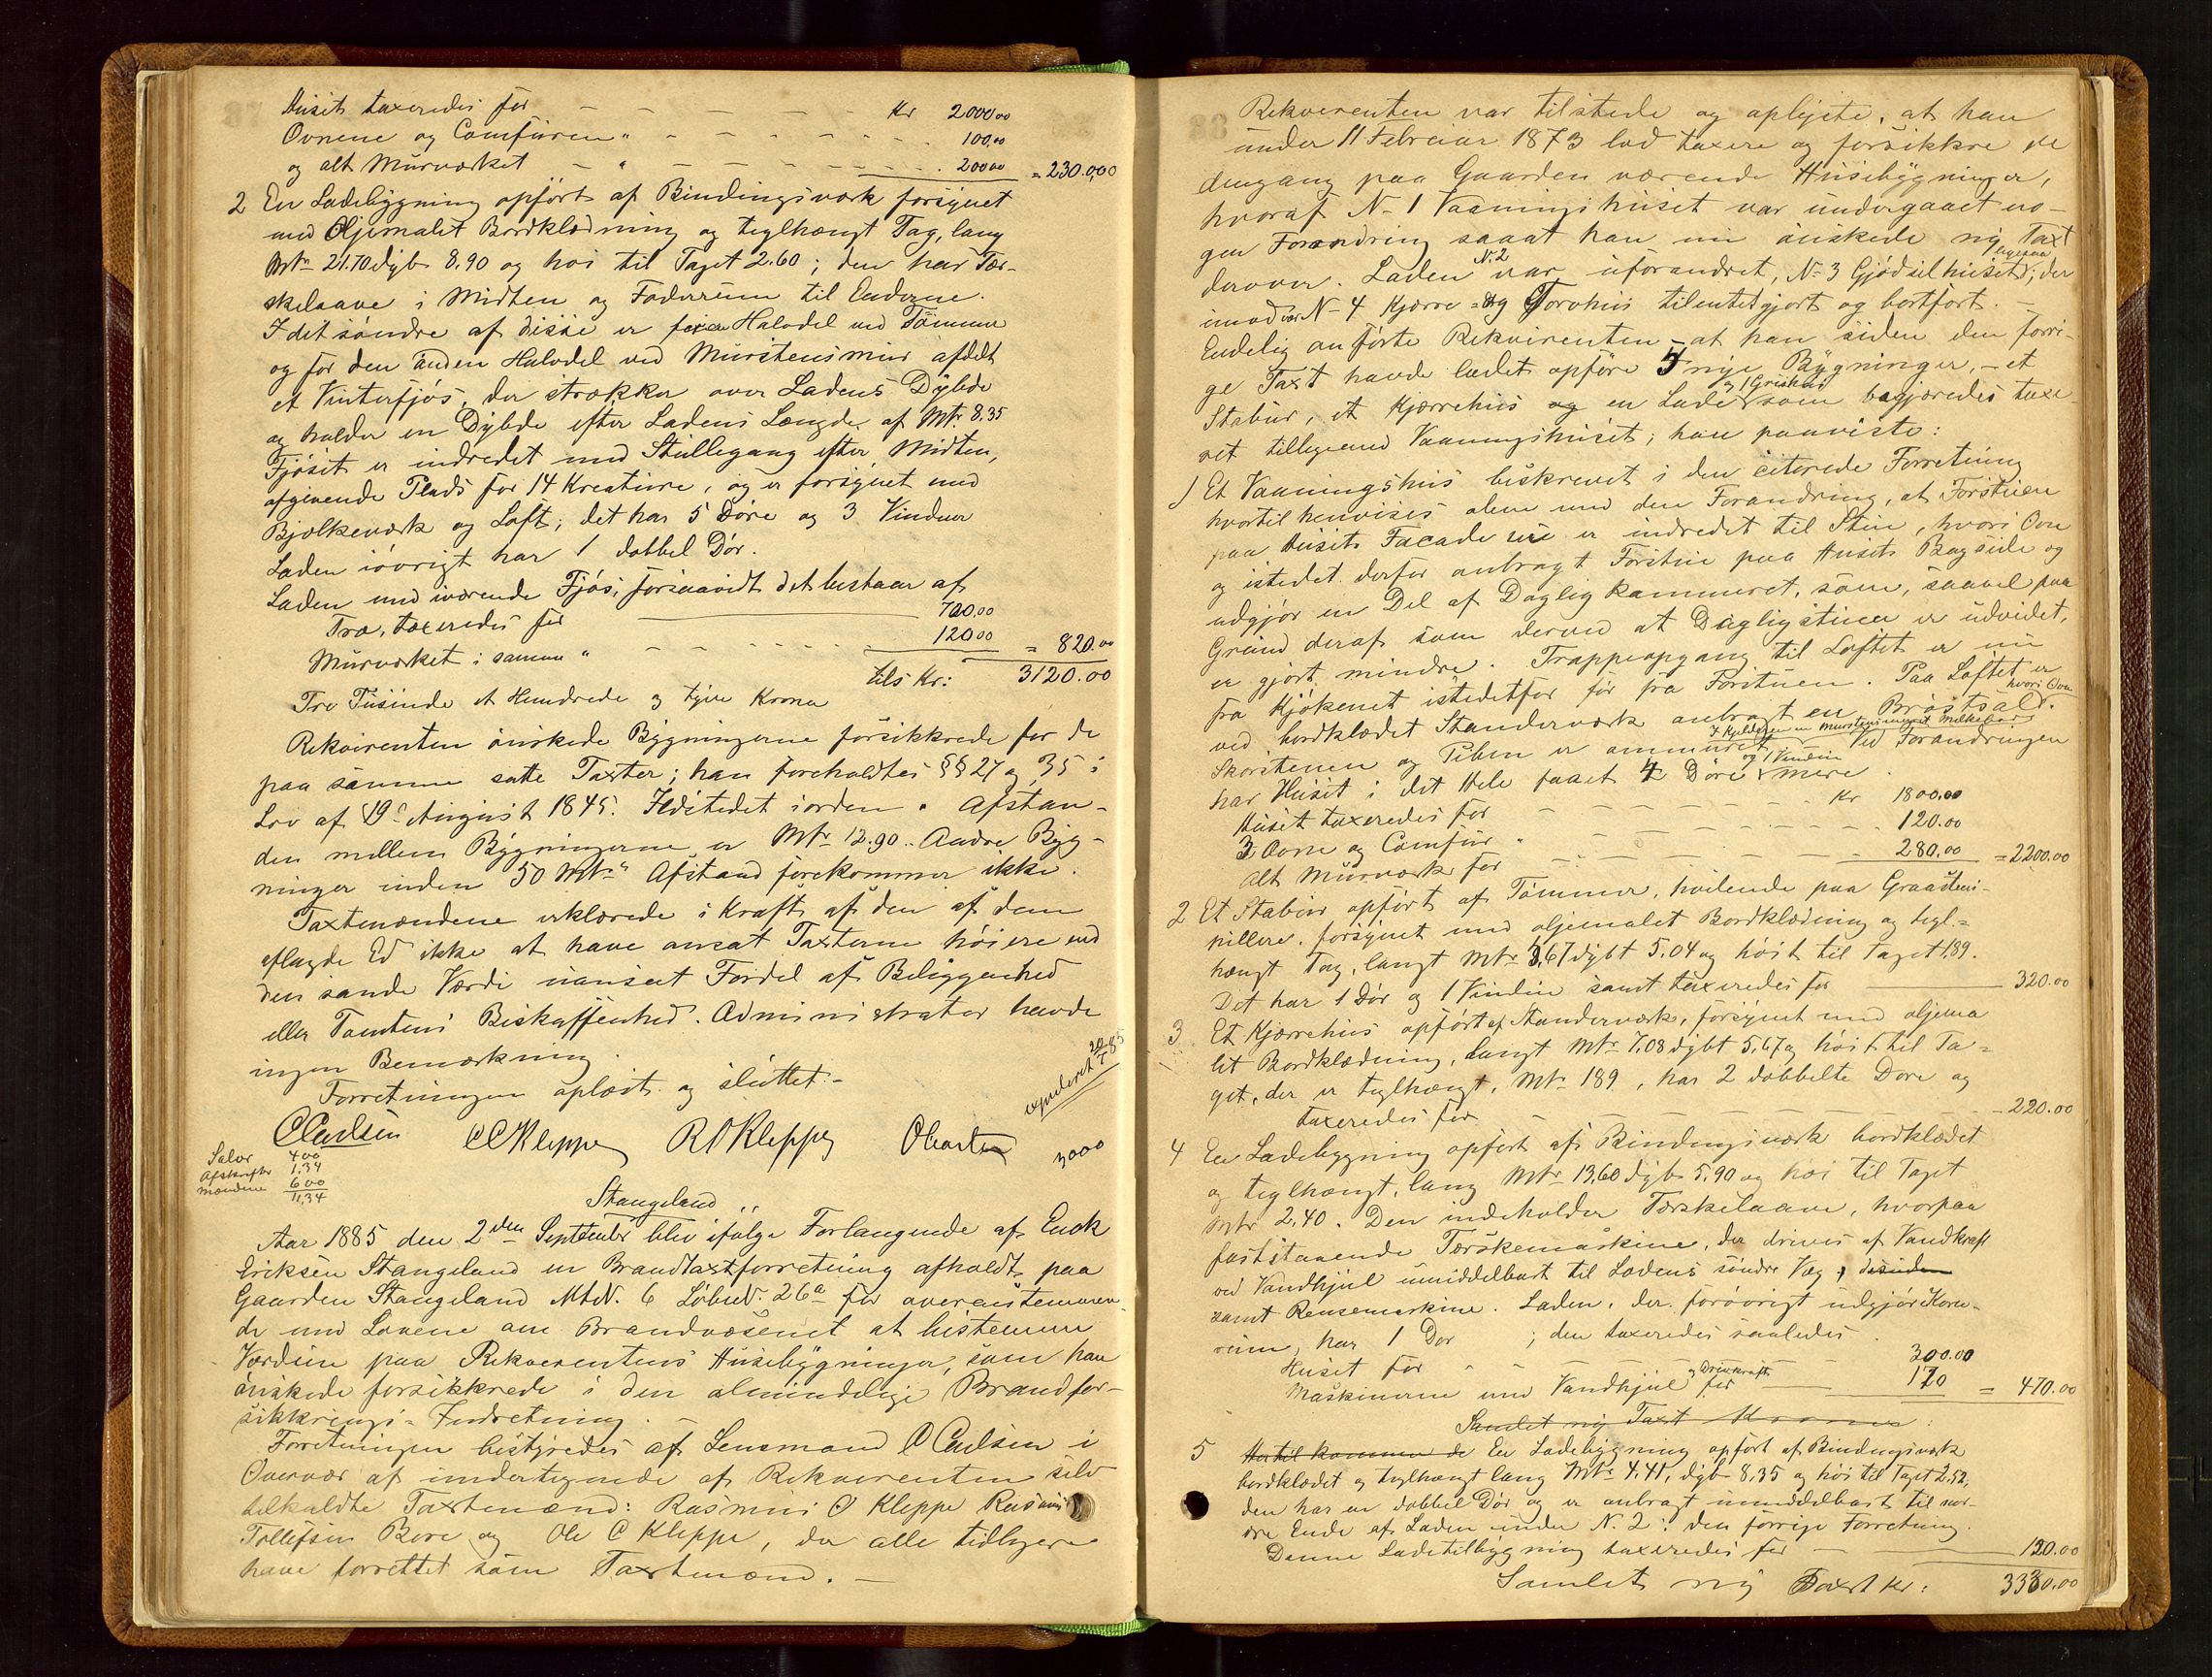 Huset taxeredes for - - - - - Kr 2000.00
Ovnene og Comfuren " - - - - - 100.00
og alt Murværket - " - - - - - 200.00 = 2300.00
2 En Ladebygning opført af Bindingsværk forsynet
med Oljemalet Bordklædning og teglhængt Tag, lang
Mtr 21.70 dyb 8.90 og høi til Taget 2.60; den har Tær-
skelaave i Midten og Foderrum til Enderne.
I det søndre af disse er for en Halvdel ved Tømmer
og for den anden Halvdel ved Murstensmur afdelt
et Vinterfjøs, der strækker over Ladens Dybde
og holder en Dybde efter Ladens Længde af Mtr. 8.35
Fjøset er indredet med Stillegang efter Midten,
afgivende Plads for 14 Kreature, og er forsynet med
Bjælkeværk og Loft; det har 5 Døre og 3 Vinduer
Laden iøvrigt har 1 dobbel Dør.
Laden med iværende Fjøs, forsaavidt det bestaar af
Træ, taxeredes for 700.00
Murværket i samme " - - - - 120.00 = 820.00
tils Kr: 3120.00
Tre Tusinde et Hundrede og tyve Kroner
Rekvirenten ønskede Bygningerne forsikkrede for de
paa samme satte Taxter; han foreholdtes §§ 27 og 35 i
Lov af 19de August 1845. Ildstedet i orden. Afstan-
den mellem Bygningerne er Mtr 12.90. Andre Byg-
ninger inden 50 Mtr's Afstand forekommer ikke.
Taxtmændene erklærede i Kraft af den af dem
aflagde Ed ikke at have ansat Taxterne høiere end
den sande Værdi uanseet Fordel af Beliggenhed
eller Tomtens Beskaffenhed. Administrator havde
ingen Bemærkning.
Forretningen oplæst og sluttet.-
expederet 20/7 85
CCarlsen OCKleppe ROKleppe
3000
Salær 400
Afskrifter 1,34
Mændene 600
11,34
Stangeland
Aar 1885 den 2den September blev ifølge Forlangende af Enok
Eriksen Stangeland en Brandtaxtforretning afholdt paa
Gaarden Stangeland Mt.N. 6 LøbeN. 26a for overenstemmen-
de med Lovene om Brandvæsenet at bestemme
Værdien paa Rekvirentens Husebygninger, som han
ønskede forsikkrede i den almindelige Brandfor-
sikkrings-Indretning.
Forretningen bestyredes af Lensmand C Carlsen i
Overvær af undertegnede af Rekvirenten selv
tilkaldte Taxtmænd: Rasmus O Kleppe Rasmus
Tollefsen Bore og Ole C Kleppe, der alle tidligere
have forrettet som Taxtmænd. -
Rekvirenten var tilstede og oplyste, at han
under 11 Februar 1873 lod taxere og forsikkre de
dengang paa Gaarden værende Husebygninger,
hvoraf N-1 Vaaningshuset var undergaaet no-
gen Forandring saaat han nu ønskede ny Taxt
derover. Laden N.2 var uforandret, N-3 Gjødselhuset ; der
imod var N-4 Kjærre- og Torvhus tilintetgjort og bortført. -
Endelig anførte Rekvirenten - at han siden den forri-
ge Taxt havde ladet opføre 5 nye Bygninger, - et
Stabur, et Kjærrehus og en Lade og 1 Grishus som begjæredes taxe-
ret tilligemed Vaaningshuset; han paaviste:
1 Et Vaaningshus beskrevet i den citerede Forretning
hvortil henvises alene med den Forandring, at Forstuen
paa Husets Facade er indredet til Stue, hvori Ovn
og istedet derfor anbragt Forstue paa Husets Bagside og
udgjør en Del af Dagligkammeret, som, saavel paa
Grund deraf som derved at Dagligstuen er udvidet,
er gjort mindre. Trappeopgang til Loftet er nu
fra Kjøkenet istedetfor før fra Forstuen. Paa Loftet er
ved bordklædet Standerværk anbragt en Brøstsal. hvori Ovn
Skorstenen og Piben er ommuret I Kjelderen en Murstensmuret Ved Forandringen
har Huset i det Hele faaet 4 Døre og 1 Vindue mere.
Huset taxeredes for - - - - - Kr 1800.00
3 Ovne og Comfur " - - - - - 120.00
Alt Murværk for - - - - - 280.00 = 2200.00
2 Et Stabur opført af Tømmer, hvilende paa Graastens-
pillere, forsynet med oljemalet Bordklædning og tegl-
hængt Tag, langt Mtr 5,67 dybt 5.04 og høit til Taget 1,89.
Det har 1 Dør og 1 Vindue samt taxeredes for 320.00
3 Et Kjærrehus opført af Standerværk, forsynet med oljema
let Bordklædning, langt Mtr 7.08 dybt 5,67 og høit til Ta-
get, der er teglhængt, Mtr 189, har 2 dobbelte Døre og
taxeredes for - - - - - 220.00
4 En Ladebygning opført af Bindingsværk bordklædet
og teglhængt, lang Mtr 13,60 dyb 5.90 og høi til Taget
Mtr 2,40. Den indeholder Tærskelaave, hvorpaa
faststaaende Tærskemaskine, der drives af Vandkraft
ved Vandhjul umiddelbart til Ladens søndre Væg, desuden
samt Rensemaskine. Laden, der forøvrigt udgjør Korn-
rum, har 1 Dør ; den taxeredes saaledes
Huset for - - - - - 300.00
Maskinerne med Vandhjul og Drivkraft for - - 170 = 470.00
Samlet ny Taxt Kroner:
5 Hertil kommer de En Ladebygning opført af Bindingsværk
bordklædet og teglhængt lang Mtr 4,41, dyb 8,35 og høi til Taget 2,52,
den har en dobbel Dør og er anbragt umiddelbart til nor-
dre Ende af Laden under N. 2 i den forrige Forretning.
Denne Ladetilbygning taxeredes for - 120.00
Samlet ny Taxt kr: 3330.00